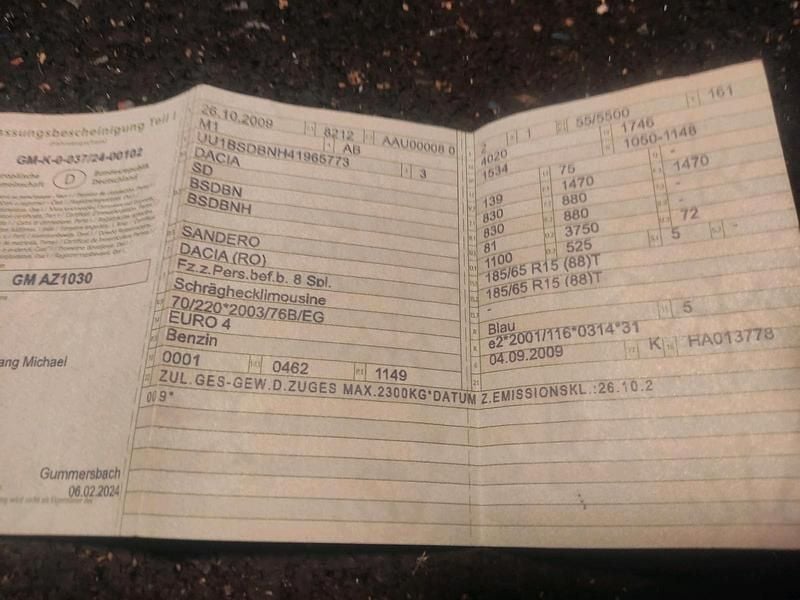 ssungsbescheinigung Teil I
GM-K-0-037/24-00102
D
Bundesrepublik
Deutschland
GM AZ1030
ang Michael
Gummersbach
06.02.2024
26.10.2009 8212 AAU00008 0
M1 AB
UU1BSDBNH41965773 3
DACIA
SD
BSDBN
BSDBNH
SANDERO
DACIA (RO)
Fz.z.Pers.bef.b. 8 Spl.
Schräghecklimousine
70/220*2003/76B/EG
EURO 4
Benzin
0001 0462 1149
ZUL.GES-GEW.D.ZUGES MAX.2300KG*DATUM Z.EMISSIONSKL.:26.10.2
009*
2 1 55/5500 161
4020 1746
1534 1050-1148
139 75 -
830 1470 1470
830 880 -
81 880 -
1100 3750 72
185/65 R15 (88)T 525 5 -
185/65 R15 (88)T
-
Blau 5
e2*2001/116*0314*31
04.09.2009 K HA013778